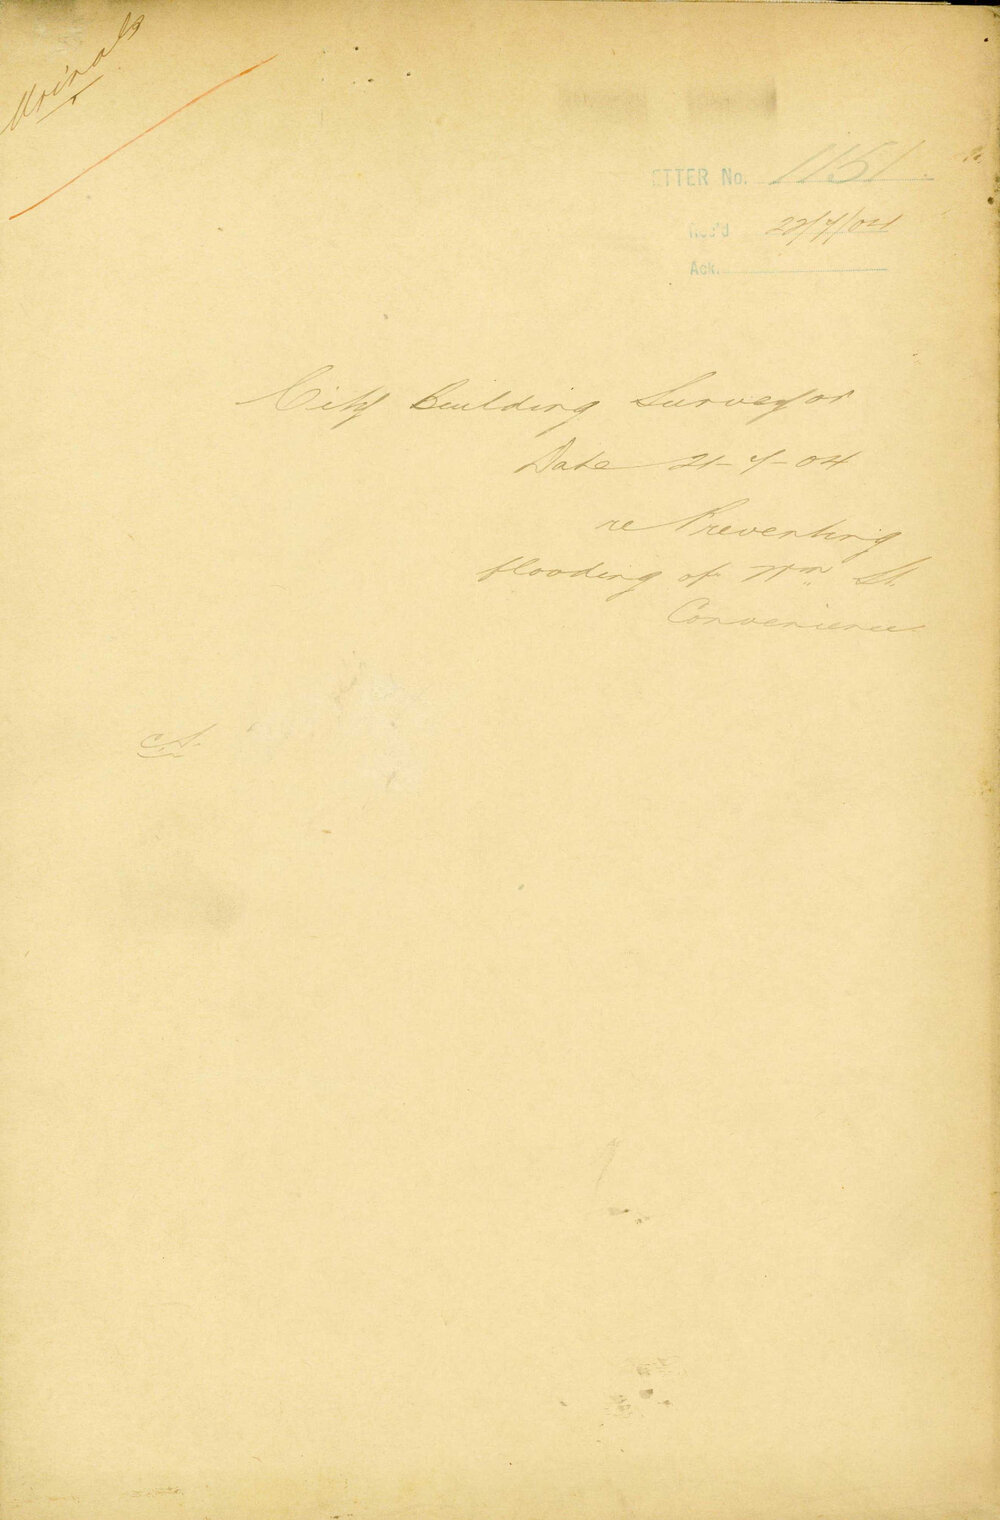 Urinals
ETTER No. 1151
Rec'd 22/7/04
Ack.
City Building Surveyor
Date 21-7-04
re Preventing
flooding of Wm St.
Convenience
C.S.